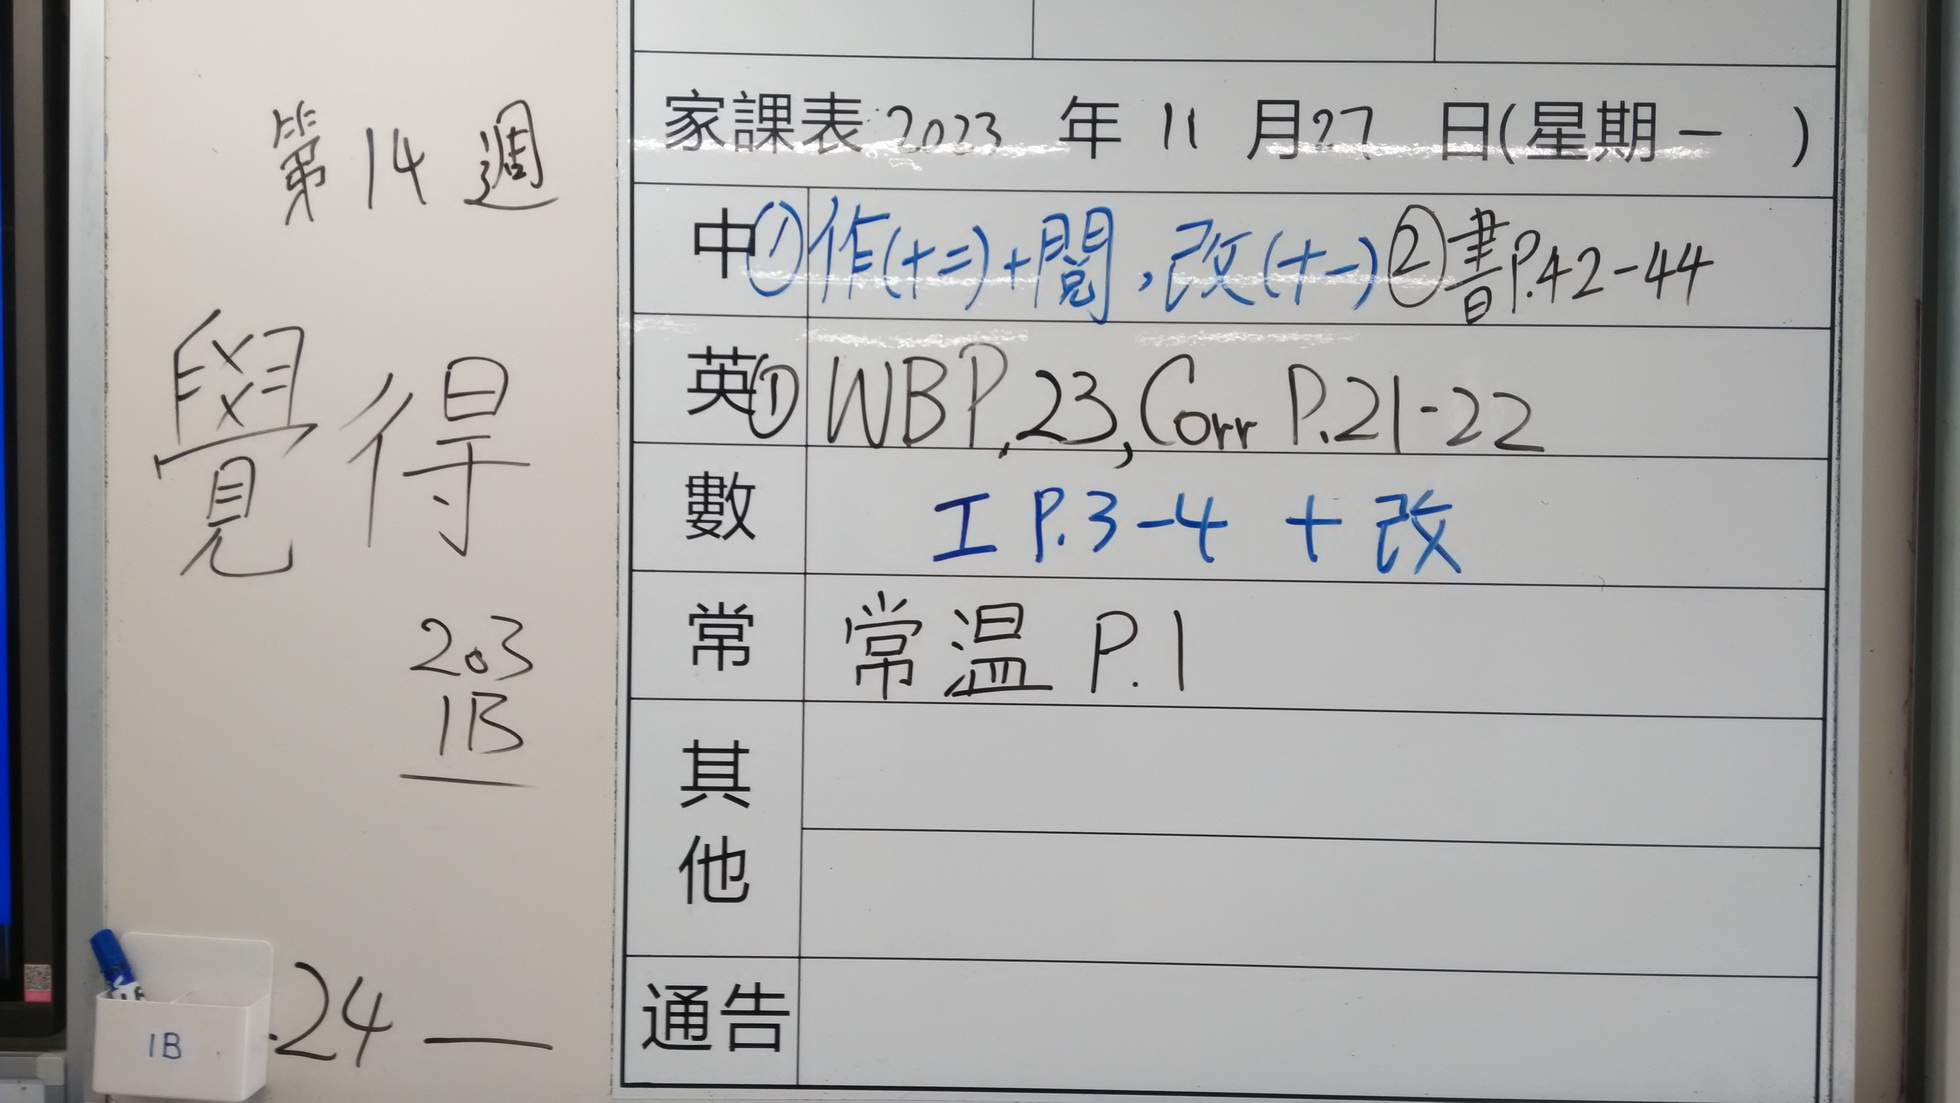 第14週
覺得
203
1B
24 —
1B
家課表 2023 年 11 月 27 日(星期一 )
中 ①作(十二)+閱,改(十一) ②書P.42-44
英 ① WB P.23, Corr P.21-22
數 工 P.3-4 + 改
常 常温 P.1
其他
通告